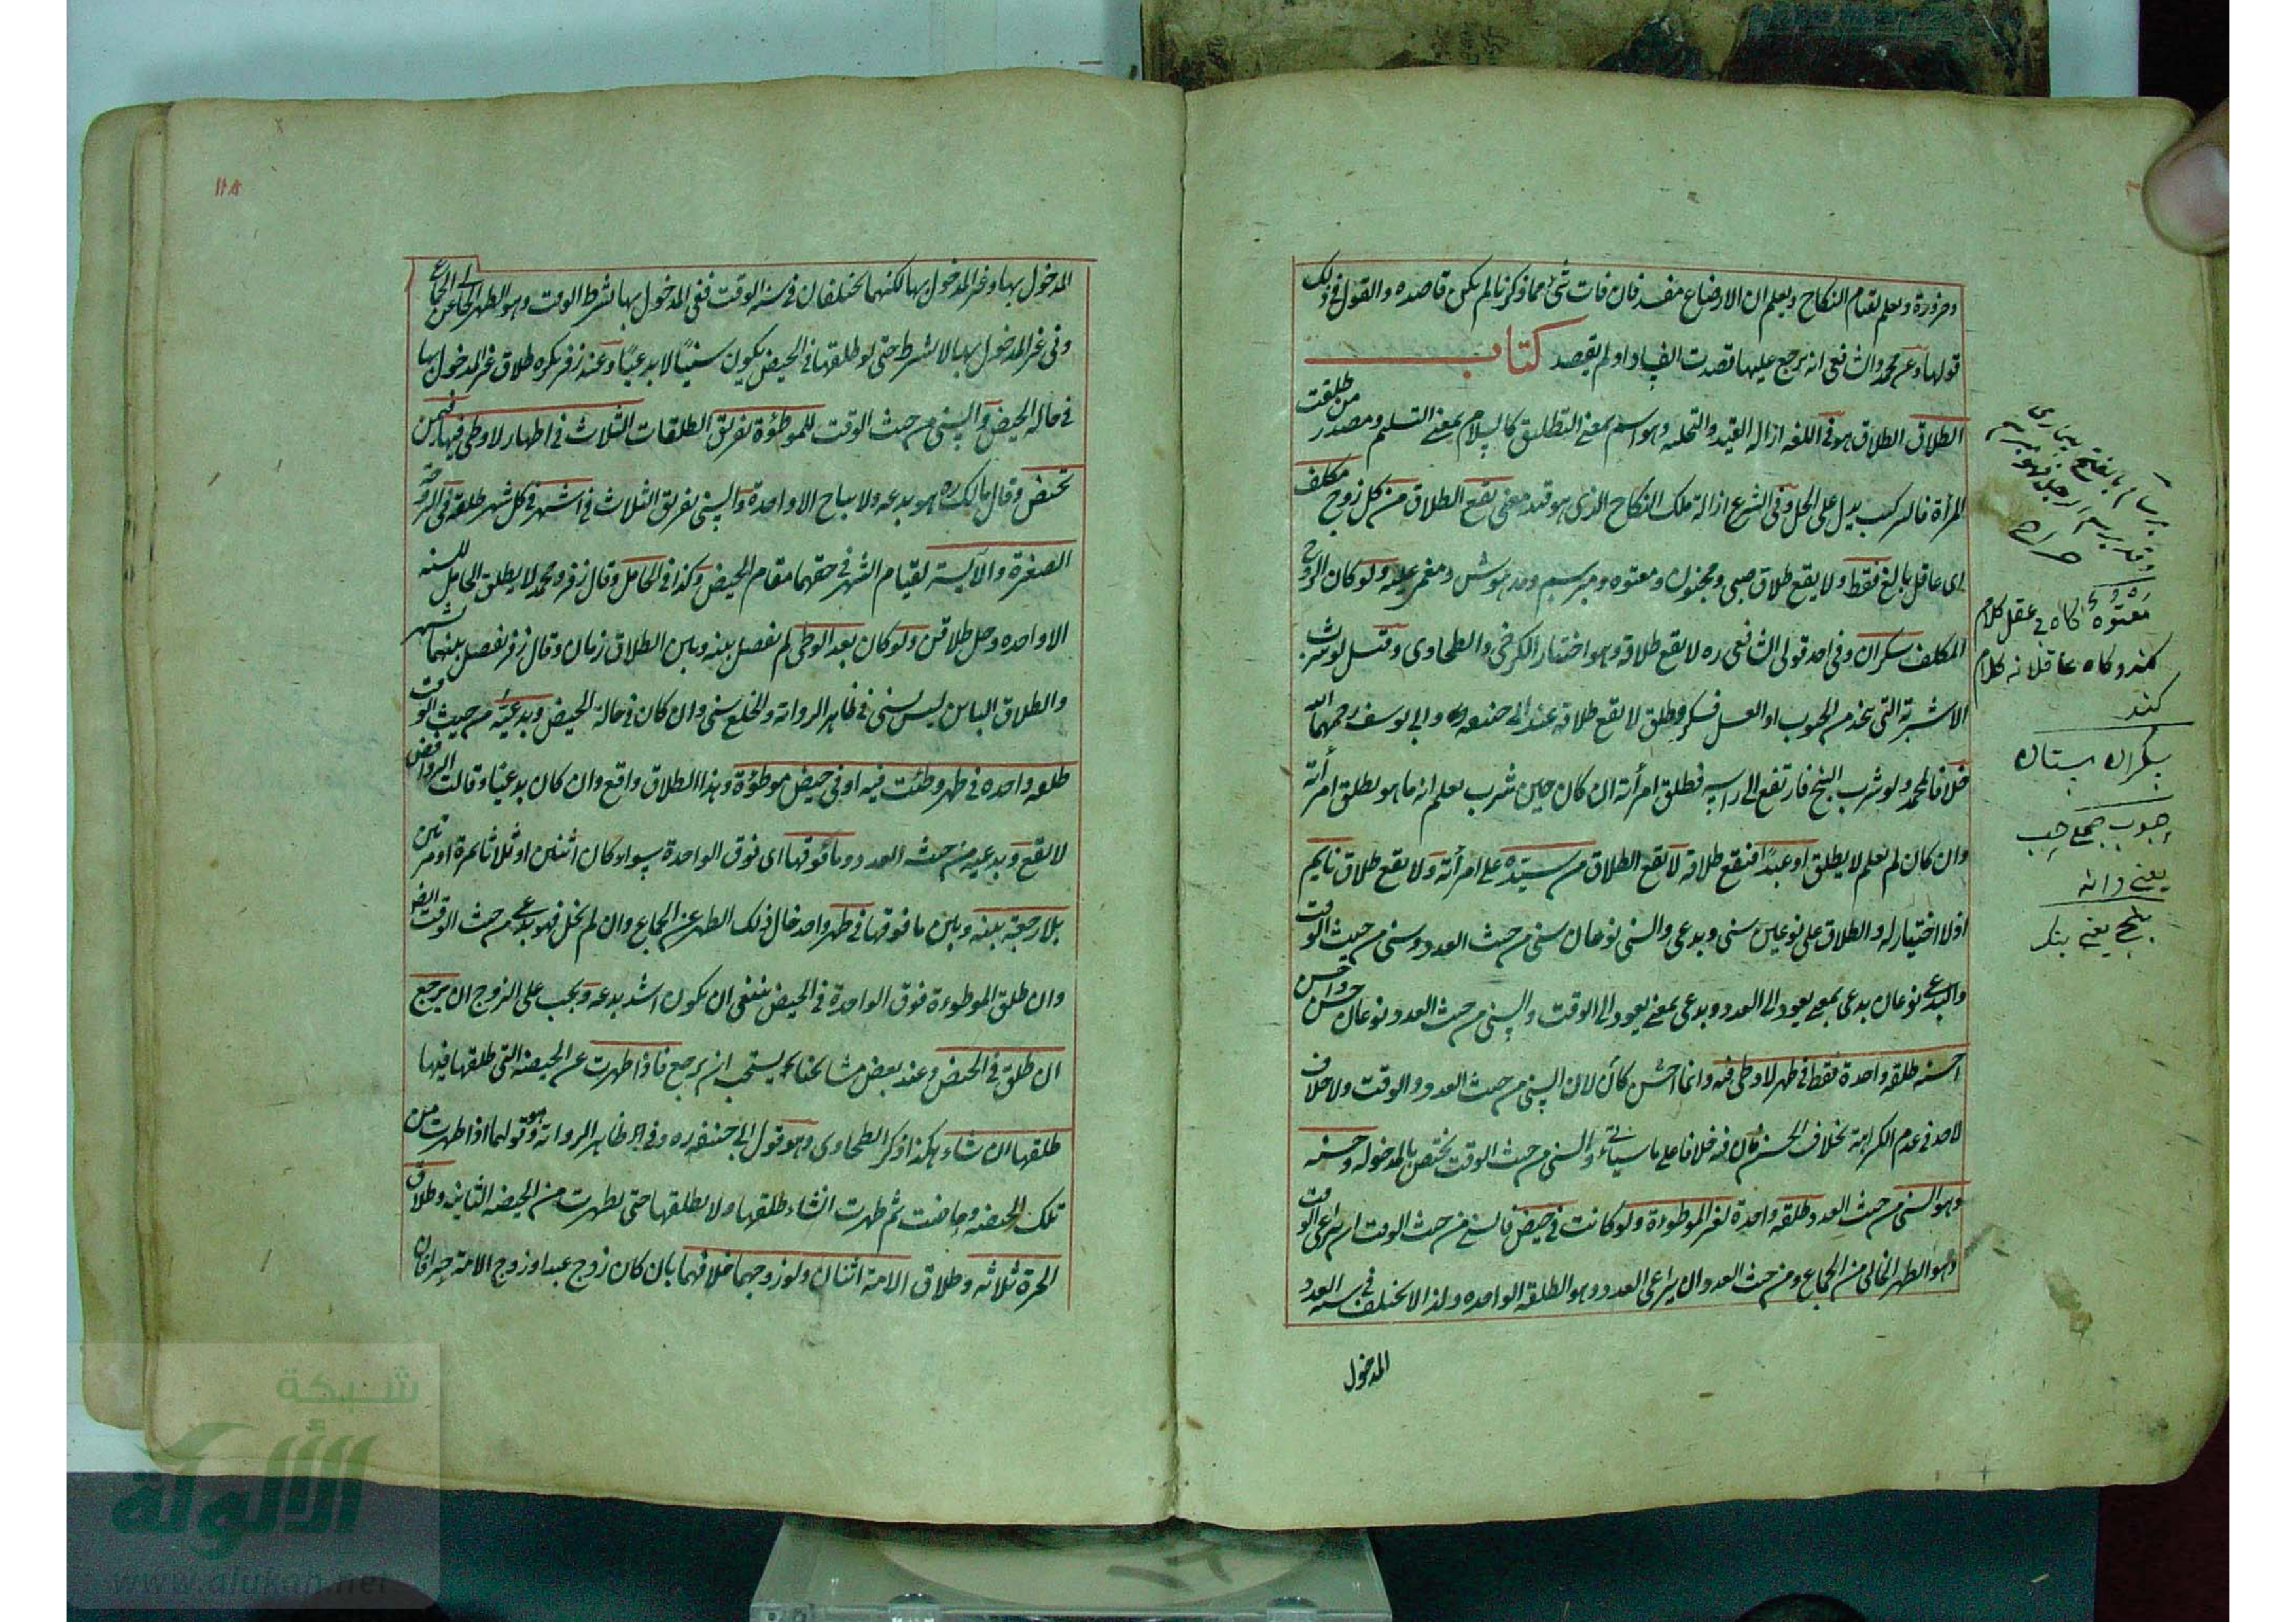 وضرورة ويعلم لقيام النكاح ويعلم ان الارضاع مفسد فان فات شئ مما ذكرنا لم يكن قاصده والقول فى ذلك
قولها وعن محمد والشافعى انه يرجع عليها قصدت الفساد او لم يقصد كتاب
الطلاق الطلاق هو فى اللغه ازاله القيد والتخليه وهو اسم بمعنى التطليق كالسلام بمعنى التسليم ومصدر من طلقت
المرأة فالتركيب يدل على الحل وفى الشرع ازالة ملك النكاح الذى هو قيد معنى يقع الطلاق من كل زوج مكلف
اى عاقل بالغ فقط ولا يقع طلاق صبى ومجنون ومعتوه ومبرسم ومدهوش ومغمى عليه ولو كان الزوج
المكلف سكران وفى احد قولى الشافعى ره لا يقع طلاقه وهو اختيار الكرخى والطحاوى وقيل لو شرب
الاشربة التى تتخذ من الحبوب او العسل فسكر وطلق لا يقع طلاقه عند ابى حنيفه وابى يوسف رحمهما الله
خلافا لمحمد ولو شرب البنج فارتفع الى راسه فطلق امرأته ان كان حين شرب يعلم انه ما هو يطلق امرأته
وان كان لم يعلم لا يطلق او عبدا فيقع طلاقه لا يقع الطلاق من سيده على امرأته ولا يقع طلاق نايم
اذ لا اختيار له والطلاق على نوعين سنى وبدعى والسنى نوعان سنى من حيث العدد وسنى من حيث الوقت
والبدعى نوعان بدعى بمعنى يعود الى العدد وبدعى بمعنى يعود الى الوقت والسنى من حيث العدد نوعان حسن واحسن
احسنه طلقه واحدة فقط فى طهر لا وطى فيه وانما احسن كان لان السنى من حيث العدد والوقت ولا خلاف
لاحد فى عدم الكراهة بخلاف الحسن فان فيه خلافا على ما سيأتى والسنى من حيث الوقت يختص بالمدخوله وحسنه
وهو السنى من حيث العدد طلقه واحدة لغير الموطوءة ولو كانت فى حيض فالسنى من حيث الوقت ان يراعى الوقت
وهو الطهر الخالى من الجماع ومن حيث العدد ان يراعى العدد وهو الطلقة الواحده ولذا لا يختلف فى سنه العدد
المدخول
برسام بالفتح بيمارى
وقد برسم الرجل فهو مبرسم
صراح
معتوه كاه بى عقل كلام
كند وكاه عاقلانه كلام
كند
سكران مستان
حبوب جمع حب
يعنى دانه
بنج يعنى بنك
المدخول بها وغير المدخول بها لكنهما يختلفان فى سنه الوقت ففى المدخول بها يشترط الوقت وهو الطهر الخالى عن الجماع
وفى غير المدخول بها لا يشترط حتى لو طلقها فى الحيض يكون سنيًا لا بدعيًا وعند زفر يكره طلاق غير المدخول بها
فى حاله الحيض والسنى من حيث الوقت للموطؤة تفريق الطلقات الثلاث فى اطهار لا وطى فيها فيمن
تحيض وقال مالك ره هو بدعه ولا يباح الا واحدة والسنى تفريق الثلاث فى اشهر فى كل شهر طلقة فى
الصغيرة والآيسة لقيام الشهر فى حقهما مقام الحيض وكذا فى الحامل وقال زفر ومحمد لا يطلق الحامل للسنه
الا واحده وحل طلاقهن ولو كان بعد الوطى لم يفصل بينه وبين الطلاق زمان وقال زفر يفصل بينهما شهر
والطلاق الباين ليس سنى فى ظاهر الرواية والخلع سنى وان كان فى حالة الحيض وبدعيّه من حيث الوقت
طلقه واحده فى طهر وطئت فيه او فى حيض موطؤة وهذا الطلاق واقع وان كان بدعيا وقالت الروافض
لا يقع وبدعيه من حيث العدد وما فوقها اى فوق الواحدة سواء كان اثنين او ثلاثا بمرة او مرتين
بلا رجعة بينه وبين ما فوقها فى طهر واحد خال ذلك الطهر عن الجماع وان لم يخل فهو بدعى من حيث الوقت ايضا
وان طلق الموطوءة فوق الواحدة فى الحيض ينبغى ان يكون اشد بدعه ويجب على الزوج ان يرجع
ان طلق فى الحيض وعند بعض مشايخنا يستحب ان يرجع فاذا طهرت عن الحيضه التى طلقها فيها
طلقها ان شاء هكذا ذكر الطحاوى وهو قول ابى حنيفه ره وفى ظاهر الرواية وهو قولهما اذا طهرت من
تلك الحيضه وحاضت ثم طهرت انشاء طلقها ولا يطلقها حتى يطهرت من الحيضه الثانيه وطلاق
الحرة ثلاثه وطلاق الامة اثنان ولو زوجهما خلافهما بان كان زوج عبدا وزوج الامة حرا فان
شبكة
الألوكة
www.alukah.net